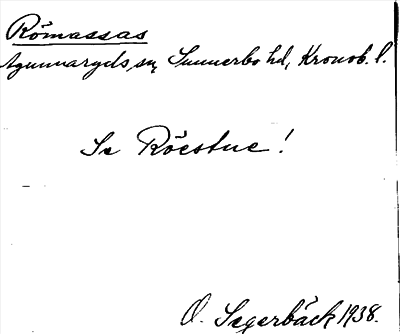 Römassas
Agunnaryds sn, Sunnerbo hd, Kronob. l.
Se Röestue!
O. Segerbäck 1938.